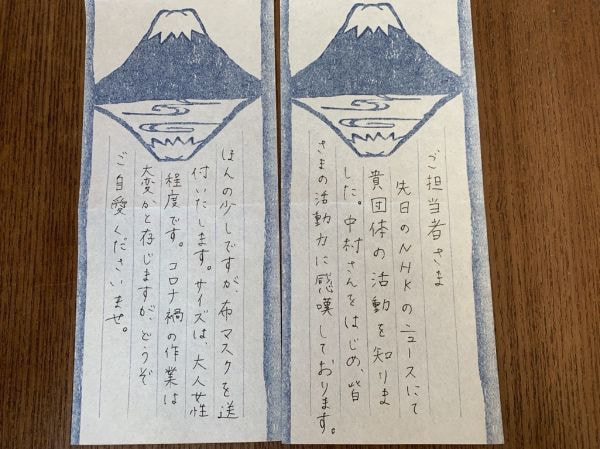 ご担当者さま
先日のNHKのニュースにて
貴団体の活動を知りま
した。中村さんをはじめ、皆
さまの活動力に感嘆しております。
ほんの少しですが、布マスクを送
付いたします。サイズは、大人女性
程度です。コロナ禍の作業は
大変かと存じますが、どうぞ
ご自愛くださいませ。